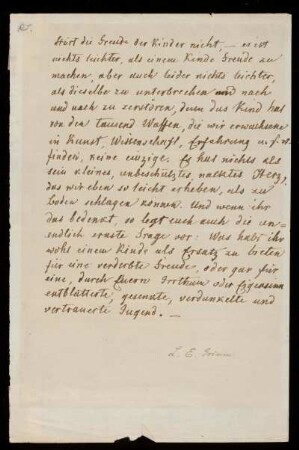 Stört die Freude der Kinder nicht, — es ist
nichts leichter, als einem Kinde Freude zu
machen, aber auch leider nichts leichter,
als dieselbe zu unterbrechen und nach
und nach zu zerstören, denn das Kind hat
von den tausend Waffen, die wir erwachsene
in Kunst, Wissenschaft, Erfahrung u. s. w.
finden, keine einzige. Es hat nichts als
sein kleines, unbeschütztes, nacktes Herz,
das wir eben so leicht erheben, als zu
boden schlagen können. Und wenn ihr
das bedenkt, so legt euch auch die un-
endlich ernste Frage vor: Was habt ihr
wohl einem Kinde als Ersatz zu bieten
für eine verderbte Freude, oder gar für
eine, durch Euern Irrthum oder Eigensinn
entblätterte, gesenkte, verdunkelte und
vertrauerte Jugend. —
L. E. Grimm